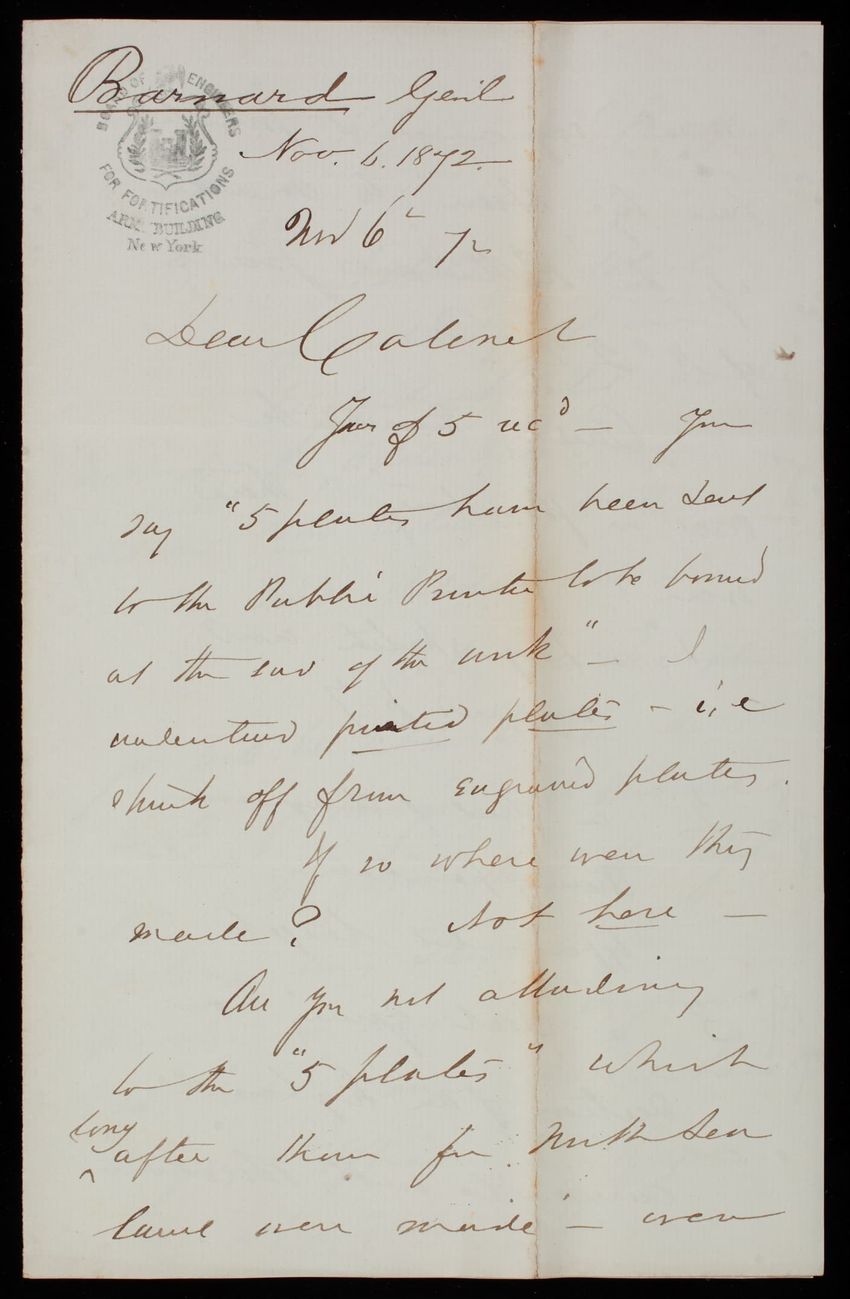 Barnard Genl
Nov. 6. 1872.
BOARD OF ENGINEERS
FOR FORTIFICATIONS
ARMY BUILDING
New York
Nov 6 72
Dear Colonel
Your of 5 recd — You
say "5 plates have been sent
to the Public Printer to be bound
at the end of the work" — I
understand printed plates — i, e
struck off from engraved plates.
If so where were they
made? Not here —
Are you not alluding
to the "5 plates" which
long
after those for North Sea
Canal were made — were